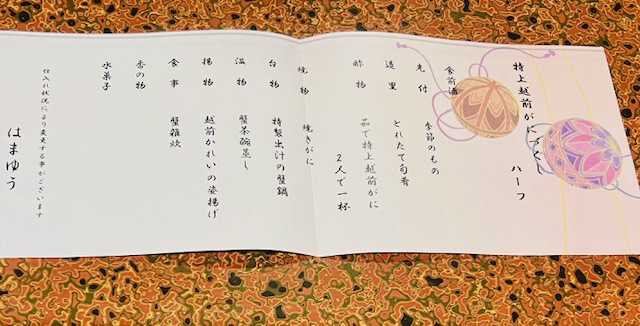 特上越前がにづくし ハーフ
食前酒
先付 季節のもの
造里 とれたて旬肴
酢物 茹で特上越前がに
2人で一杯
焼物 焼きがに
台物 特製出汁の蟹鍋
温物 蟹茶碗蒸し
揚物 越前かれいの姿揚げ
食事 蟹雑炊
香の物
水菓子
仕入れ状況により変更する事がございます
はまゆう